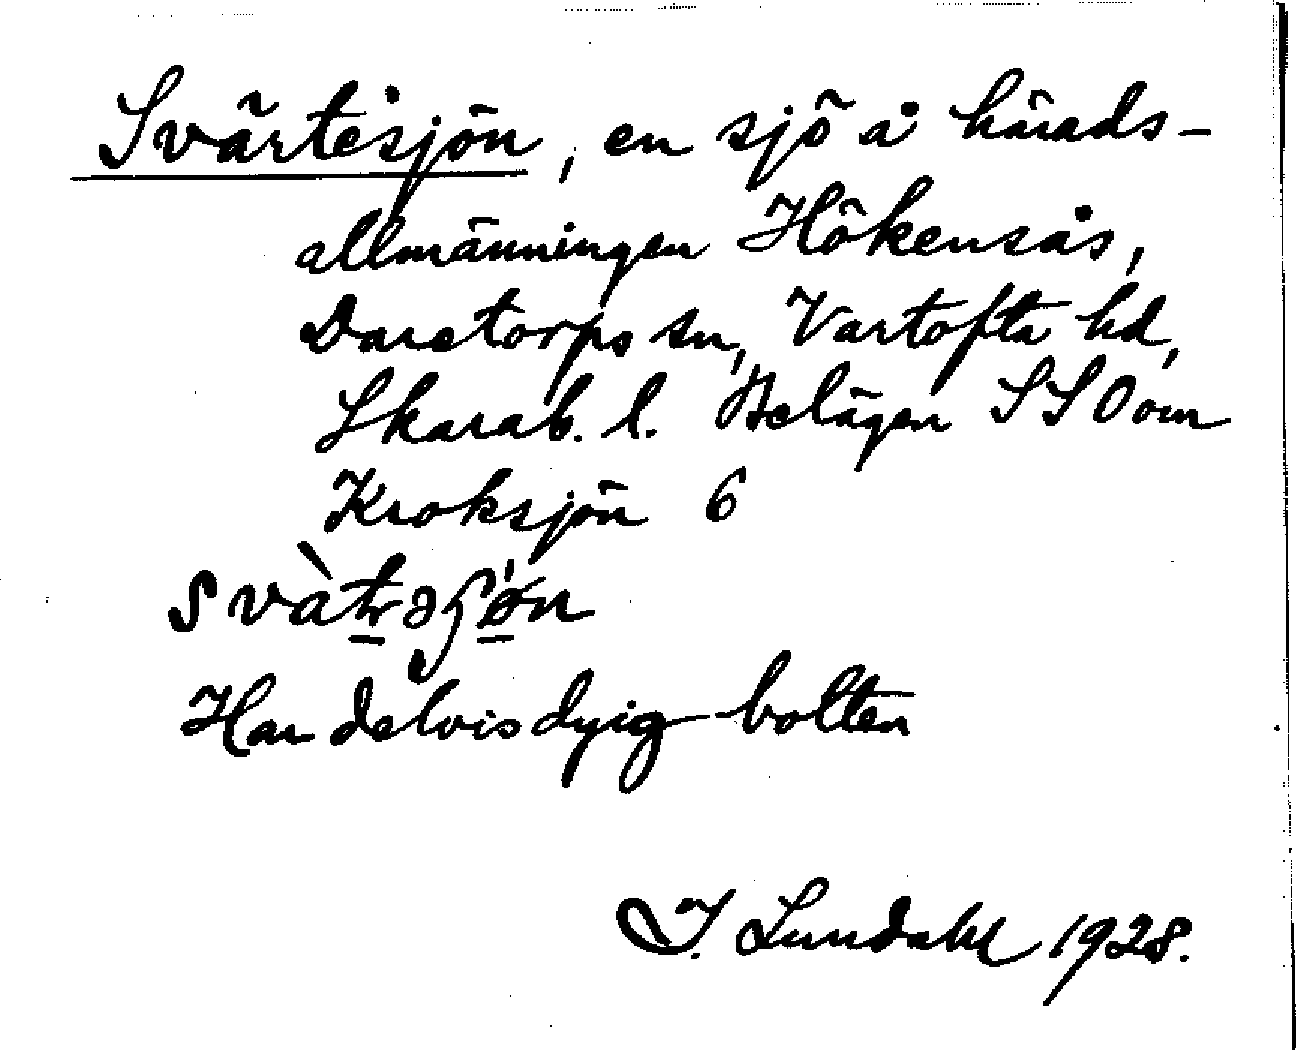 Svärtesjön, en sjö å härads-
allmänningen Hökensås,
Daretorps sn, Vartofta hd,
Skarab. l. Belägen SSO om
Kroksjön 6
Har delvis dyig botten
I. Lundahl 1928.